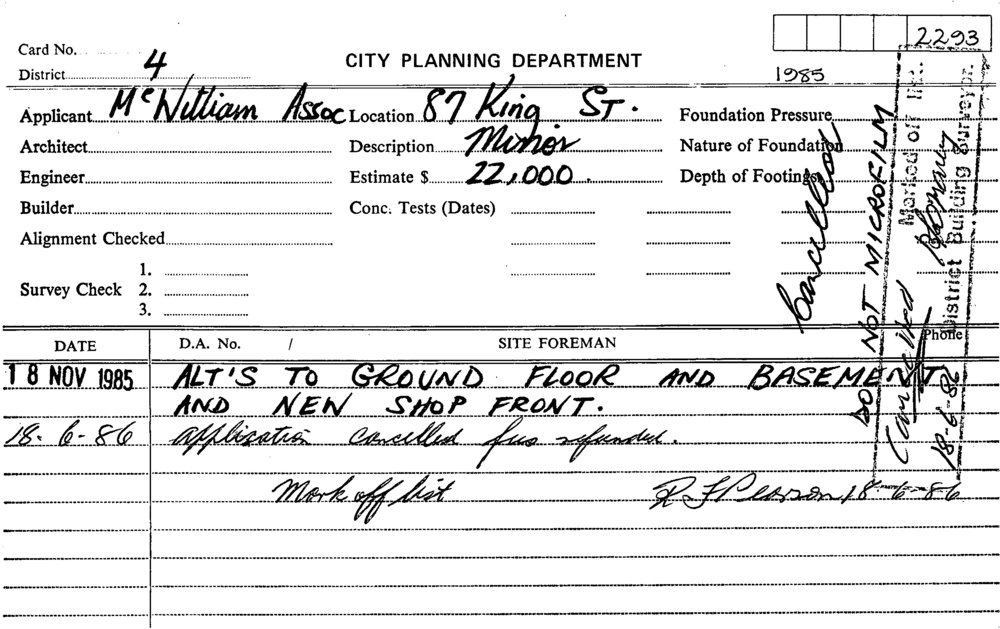 2293
Card No.
District 4
CITY PLANNING DEPARTMENT
1985
Applicant McWilliam Assoc Location 87 King ST. Foundation Pressure
Architect Description Minor Nature of Foundation
Engineer Estimate $ 22,000. Depth of Footings
Builder Conc. Tests (Dates)
Alignment Checked
1.
Survey Check 2.
3.
Cancelled
DO NOT MICROFILM
Marked off list.
District Building Surveyor.
Cancelled
18-6-86
Phone
DATE D.A. No. / SITE FOREMAN
18 NOV 1985 ALT'S TO GROUND FLOOR AND BASEMENT
AND NEW SHOP FRONT.
18-6-86 application cancelled fees refunded.
Mark off list R F Pearson 18-6-86